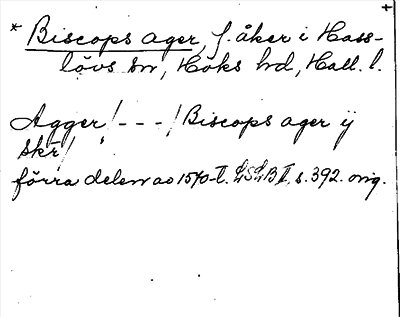 * Biscops ager, f. åker i Hass-
lövs sn, Höks hd, Hall. l.
Agger /---/ Biscops ager ij
skr/
förra delen av 1570-t. LSLB II, s. 392. orig.